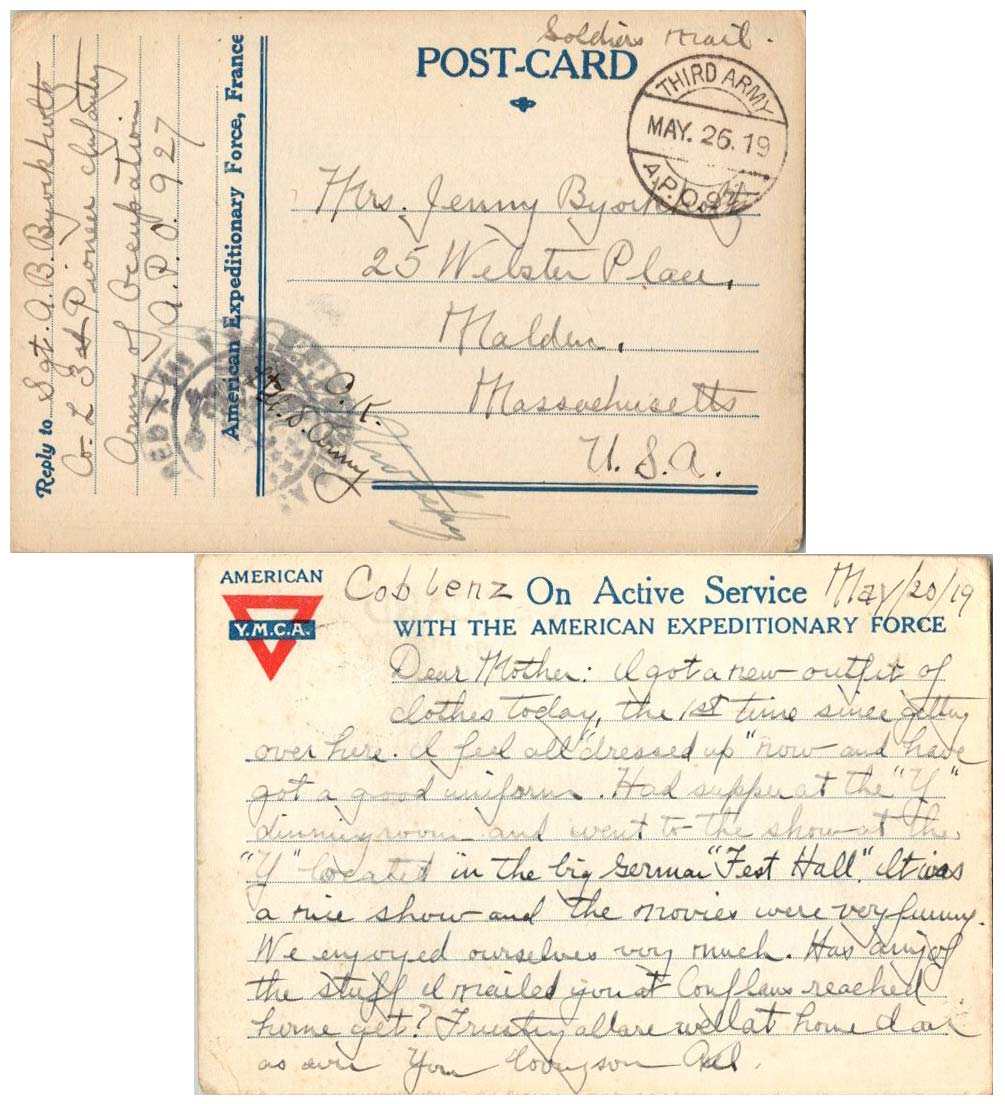 Soldiers Mail.
POST-CARD
THIRD ARMY
MAY. 26. 19
A.P.O.
Mrs. Jenny
25 Webster Place,
Malden,
Massachusetts
U. S. A.
Reply to Sgt. A. B. Byorkholt
Co. L 3rd Pioneer Infantry
Army of Occupation
A. P. O. 927
American Expeditionary Force, France
O. K.
Army
AMERICAN
Y.M.C.A.
Coblenz On Active Service May/20/19
WITH THE AMERICAN EXPEDITIONARY FORCE
Dear Mother: I got a new outfit of
clothes today, the 1st time since getting
over here. I feel all "dressed up" now and have
got a good uniform. Had supper at the "Y"
dinning room and went to the show at the
"Y" located in the big German "Fest Hall". It was
a nice show and the movies were very funny.
We enjoyed ourselves very much. Has any of
the stuff I mailed you at Conflans reached
home yet? Trusting all are well at home I am
as ever Your loving son Axel.